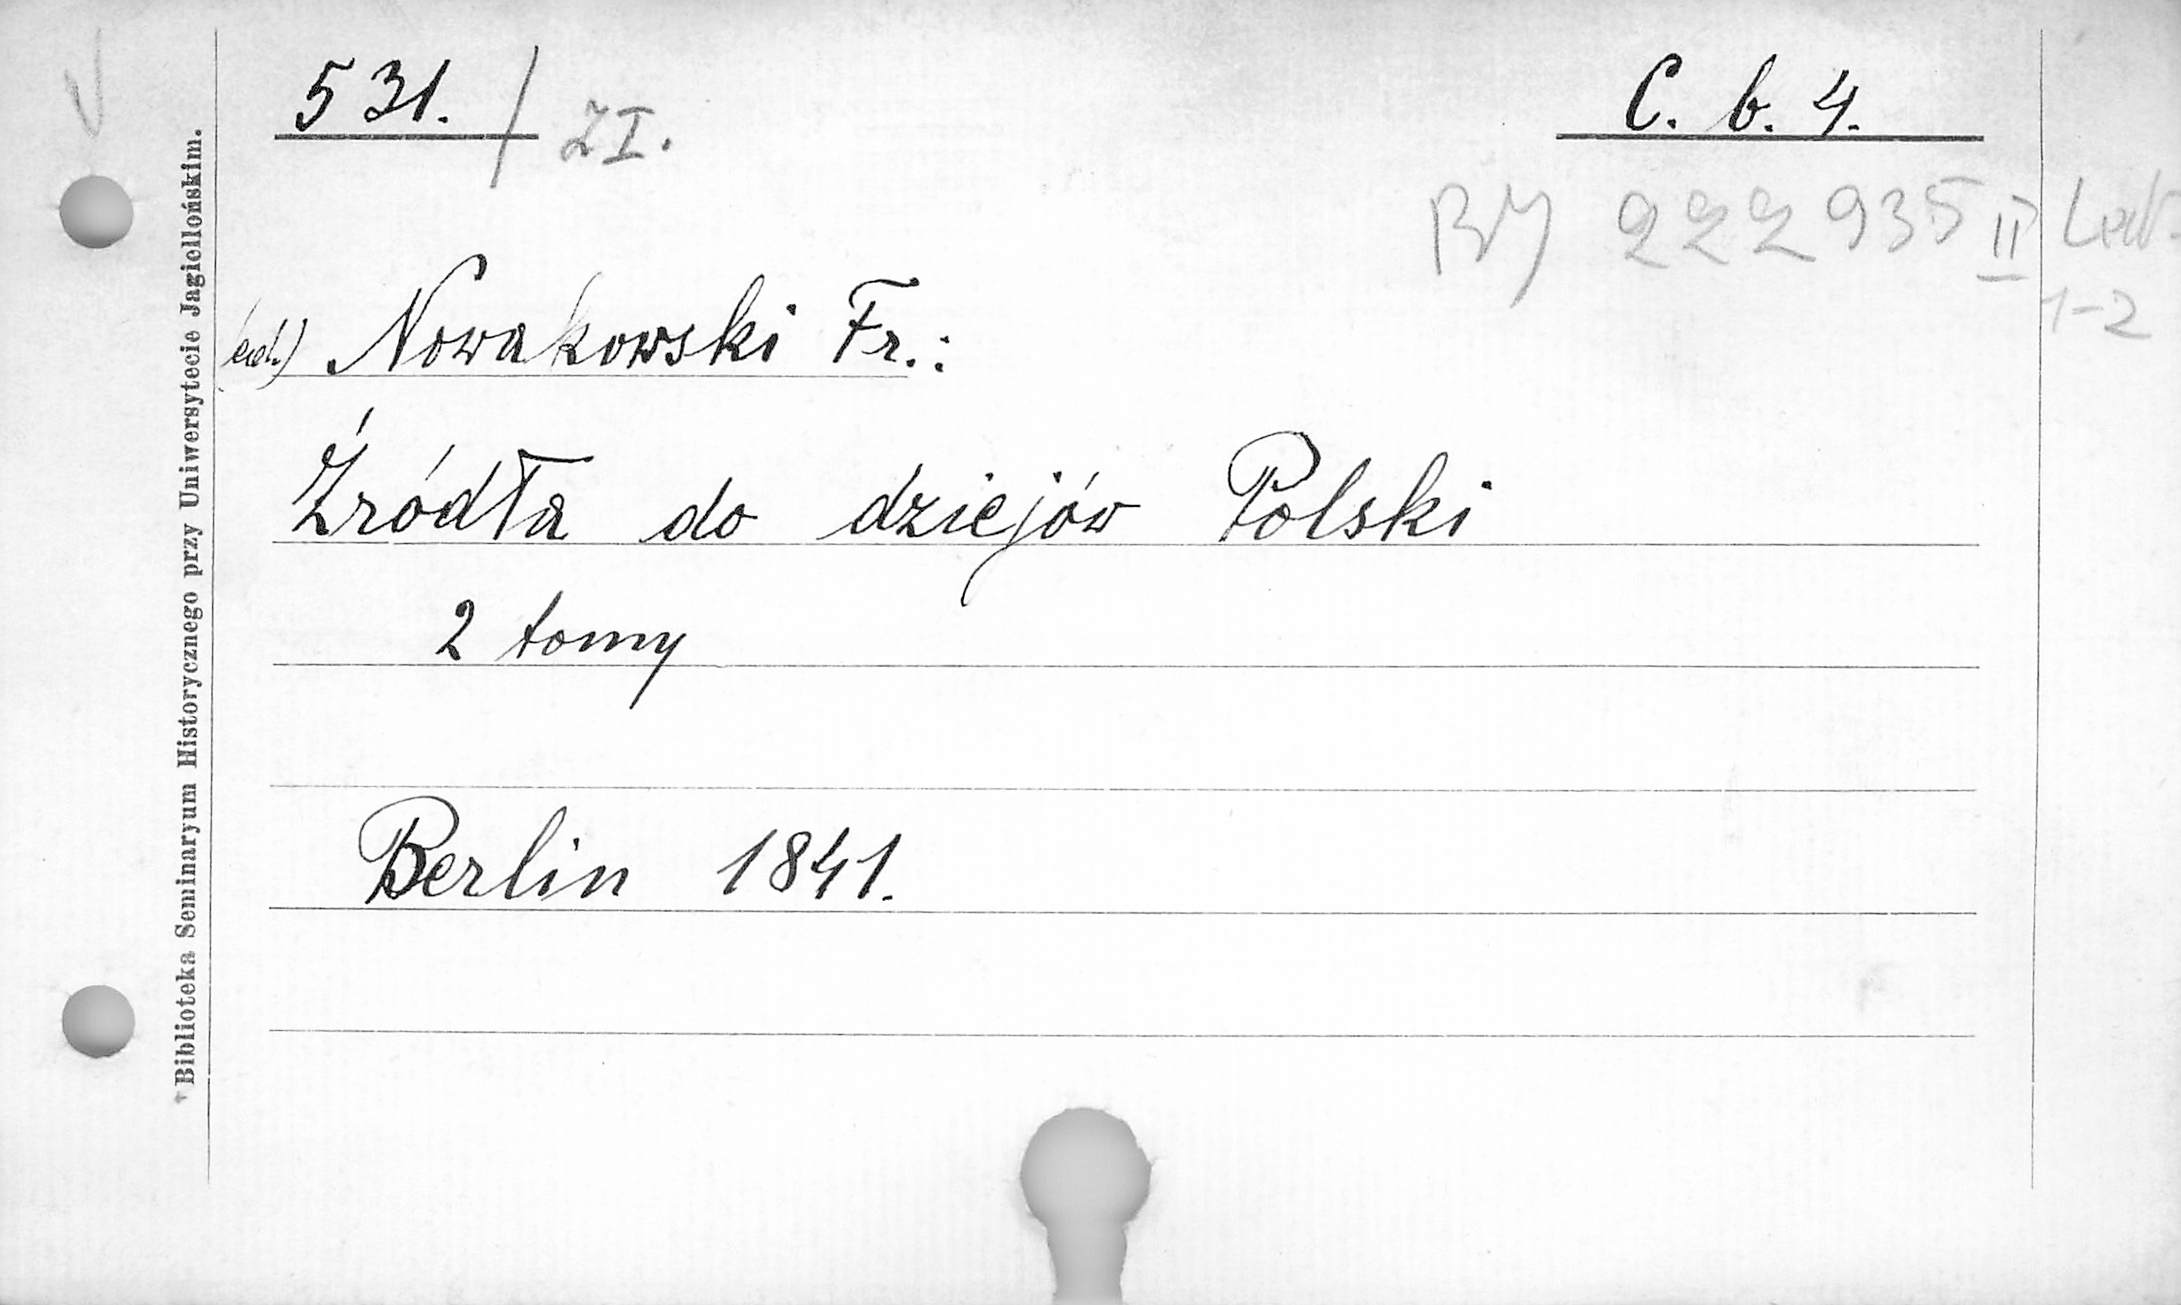 531. / ZI.
C. b. 4.
BJ 222935 II
1-2
(ed.) Nowakowski Fr.:
Źródła do dziejów Polski
2 tomy
Berlin 1841.
Biblioteka Seminaryum Historycznego przy Uniwersytecie Jagiellońskim.